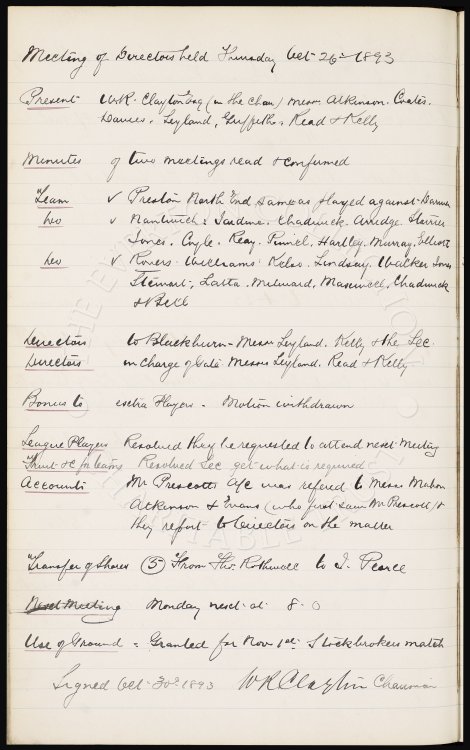 Meeting of Directors held Thursday Oct 26th 1893
Present W.R. Clayton Esq (in the Chair) Messrs Atkinson. Coates.
Davies. Leyland, Griffiths. Read & Kelly
Minutes of two meetings read & confirmed
Team v Preston North End same as played against Darwen
Do v Nantwich: Jardine. Chadwick. Arridge. Storrier
Jones. Coyle. Reay. Pinnel. Hartley. Murray. Elliott
Do v Rovers. Williams. Kelso. Lindsay. Walker Jones
Stewart, Latta. Milward, Maxwell, Chadwick
& Bell
Directors to Blackburn - Messrs Leyland. Kelly & the Sec.
Directors in charge of Gate Messrs Leyland. Read & Kelly
Bonus to extra Players - Motion withdrawn
League Players Resolved they be requested to attend next meeting
&c for teams Resolved Sec get what is required
Accounts Mr Prescotts a/c was refered to Messrs Mahon
Atkinson & Evans (who first saw Mr Prescott) &
they report to Directors on the matter
Transfer of Shares (5) From Thos. Rothwell to J. Pearce
Next Meeting Monday next at 8.0
Use of Ground - Granted for Nov 1st. Stockbrokers match
Signed Oct 30th 1893 WR Clayton Chairman